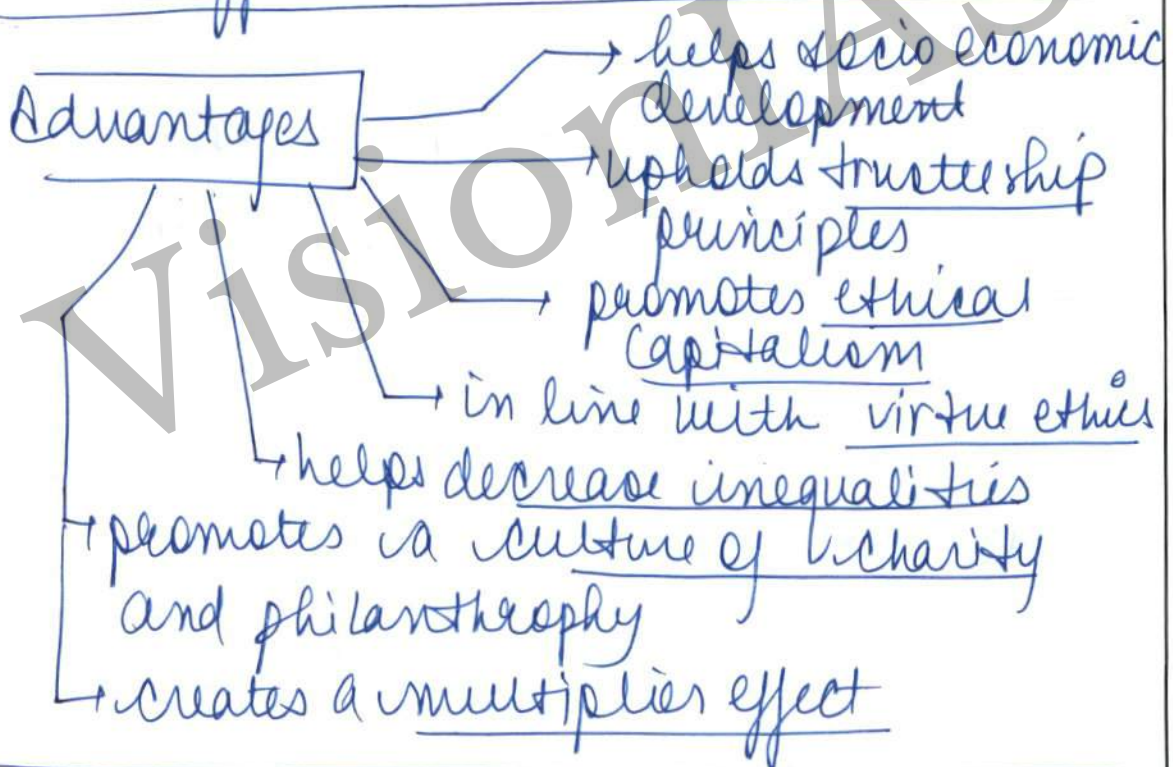 Advantages
helps socio economic
development
upholds trusteeship
principles
promotes ethical
capitalism
in line with virtue ethics
helps decrease inequalities
promotes a culture of charity
and philanthrophy
creates a multiplier effect
VisionIAS